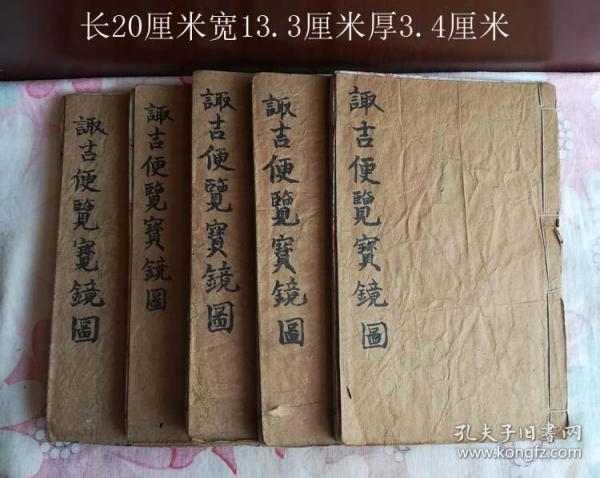 长20厘米宽13.3厘米厚3.4厘米
諏吉便覽寳鏡圖
諏吉便覽寳鏡圖
諏吉便覽寳鏡圖
諏吉便覽寳鏡圖
諏吉便覽寳鏡圖
孔夫子旧書网
www.kongfz.com